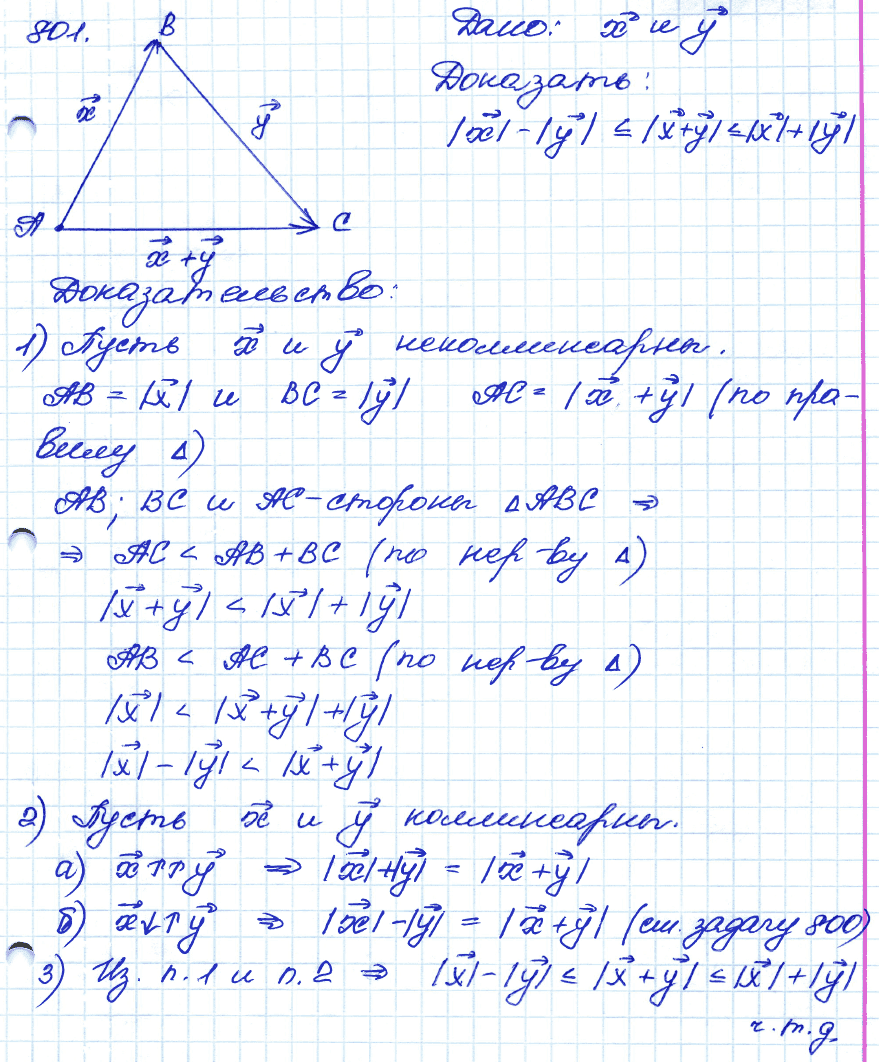 801.
B
x⃗
y⃗
A
C
x⃗ + y⃗
Дано: x⃗ и y⃗
Доказать:
|x⃗| - |y⃗| ≤ |x⃗+y⃗| ≤ |x⃗| + |y⃗|
Доказательство:
1) Пусть x⃗ и y⃗ неколлинеарны.
AB = |x⃗| и BC = |y⃗| AC = |x⃗ + y⃗| (по пра-
вилу Δ)
AB; BC и AC - стороны ΔABC ⇒
⇒ AC < AB + BC (по нер-ву Δ)
|x⃗ + y⃗| < |x⃗| + |y⃗|
AB < AC + BC (по нер-ву Δ)
|x⃗| < |x⃗+y⃗| + |y⃗|
|x⃗| - |y⃗| < |x⃗+y⃗|
2) Пусть x⃗ и y⃗ коллинеарны.
а) x⃗ ↑↑ y⃗ ⇒ |x⃗| + |y⃗| = |x⃗ + y⃗|
б) x⃗ ↓↑ y⃗ ⇒ |x⃗| - |y⃗| = |x⃗ + y⃗| (см. задачу 800)
3) Из. п.1 и п.2 ⇒ |x⃗| - |y⃗| ≤ |x⃗ + y⃗| ≤ |x⃗| + |y⃗|
ч.т.д.